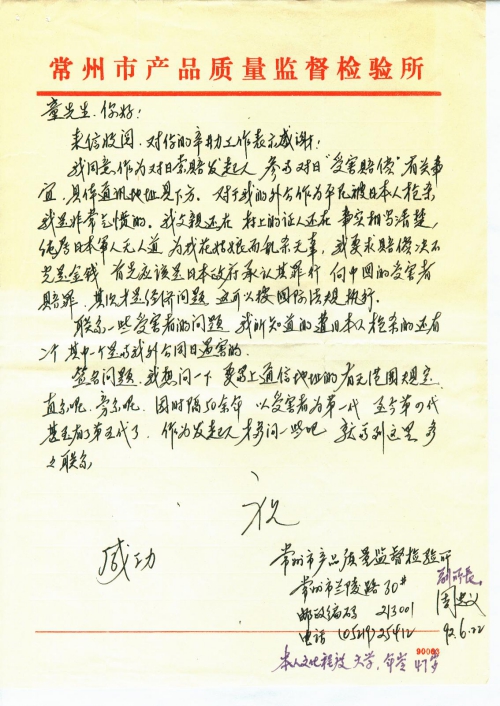 常州市产品质量监督检验所
童先生.你好:
来信收阅.对你的辛勤工作表示感谢!
我同意作为对日索赔发起人 参与对日“受害赔偿”有关事
宜.具体通讯地址见下方.对于我的外公作为平民被日本人枪杀
我是非常气愤的.我父亲还在 村上的证人还在 事实相当清楚,
纯属日本军人无人道 为找花姑娘而乱杀无辜,我要求赔偿决不
光是金钱 首先应该是日本政府承认其罪行 向中国的受害者
赔罪.其次才是经济问题 这可以按国际法规执行.
联系一些受害者的问题.我所知道的遭日本人枪杀的还有
2个 其中一个是与我外公同日遇害的.
签名问题.我想问一下 要写上通信地址的有无范围规定
直系呢.旁系呢.因时隔50余年 以受害者为第一代 至今第四代
甚至有了第五代了.作为发起人 才多问一些吧 就写到这里 多
多联系
祝
成功
常州市产品质量监督检验所
副所长
常州市兰陵路30#
周忠义
邮政编码 213001
电话 (0519)25412
92.6.22
90003
本人文化程度 大学.年龄 47岁